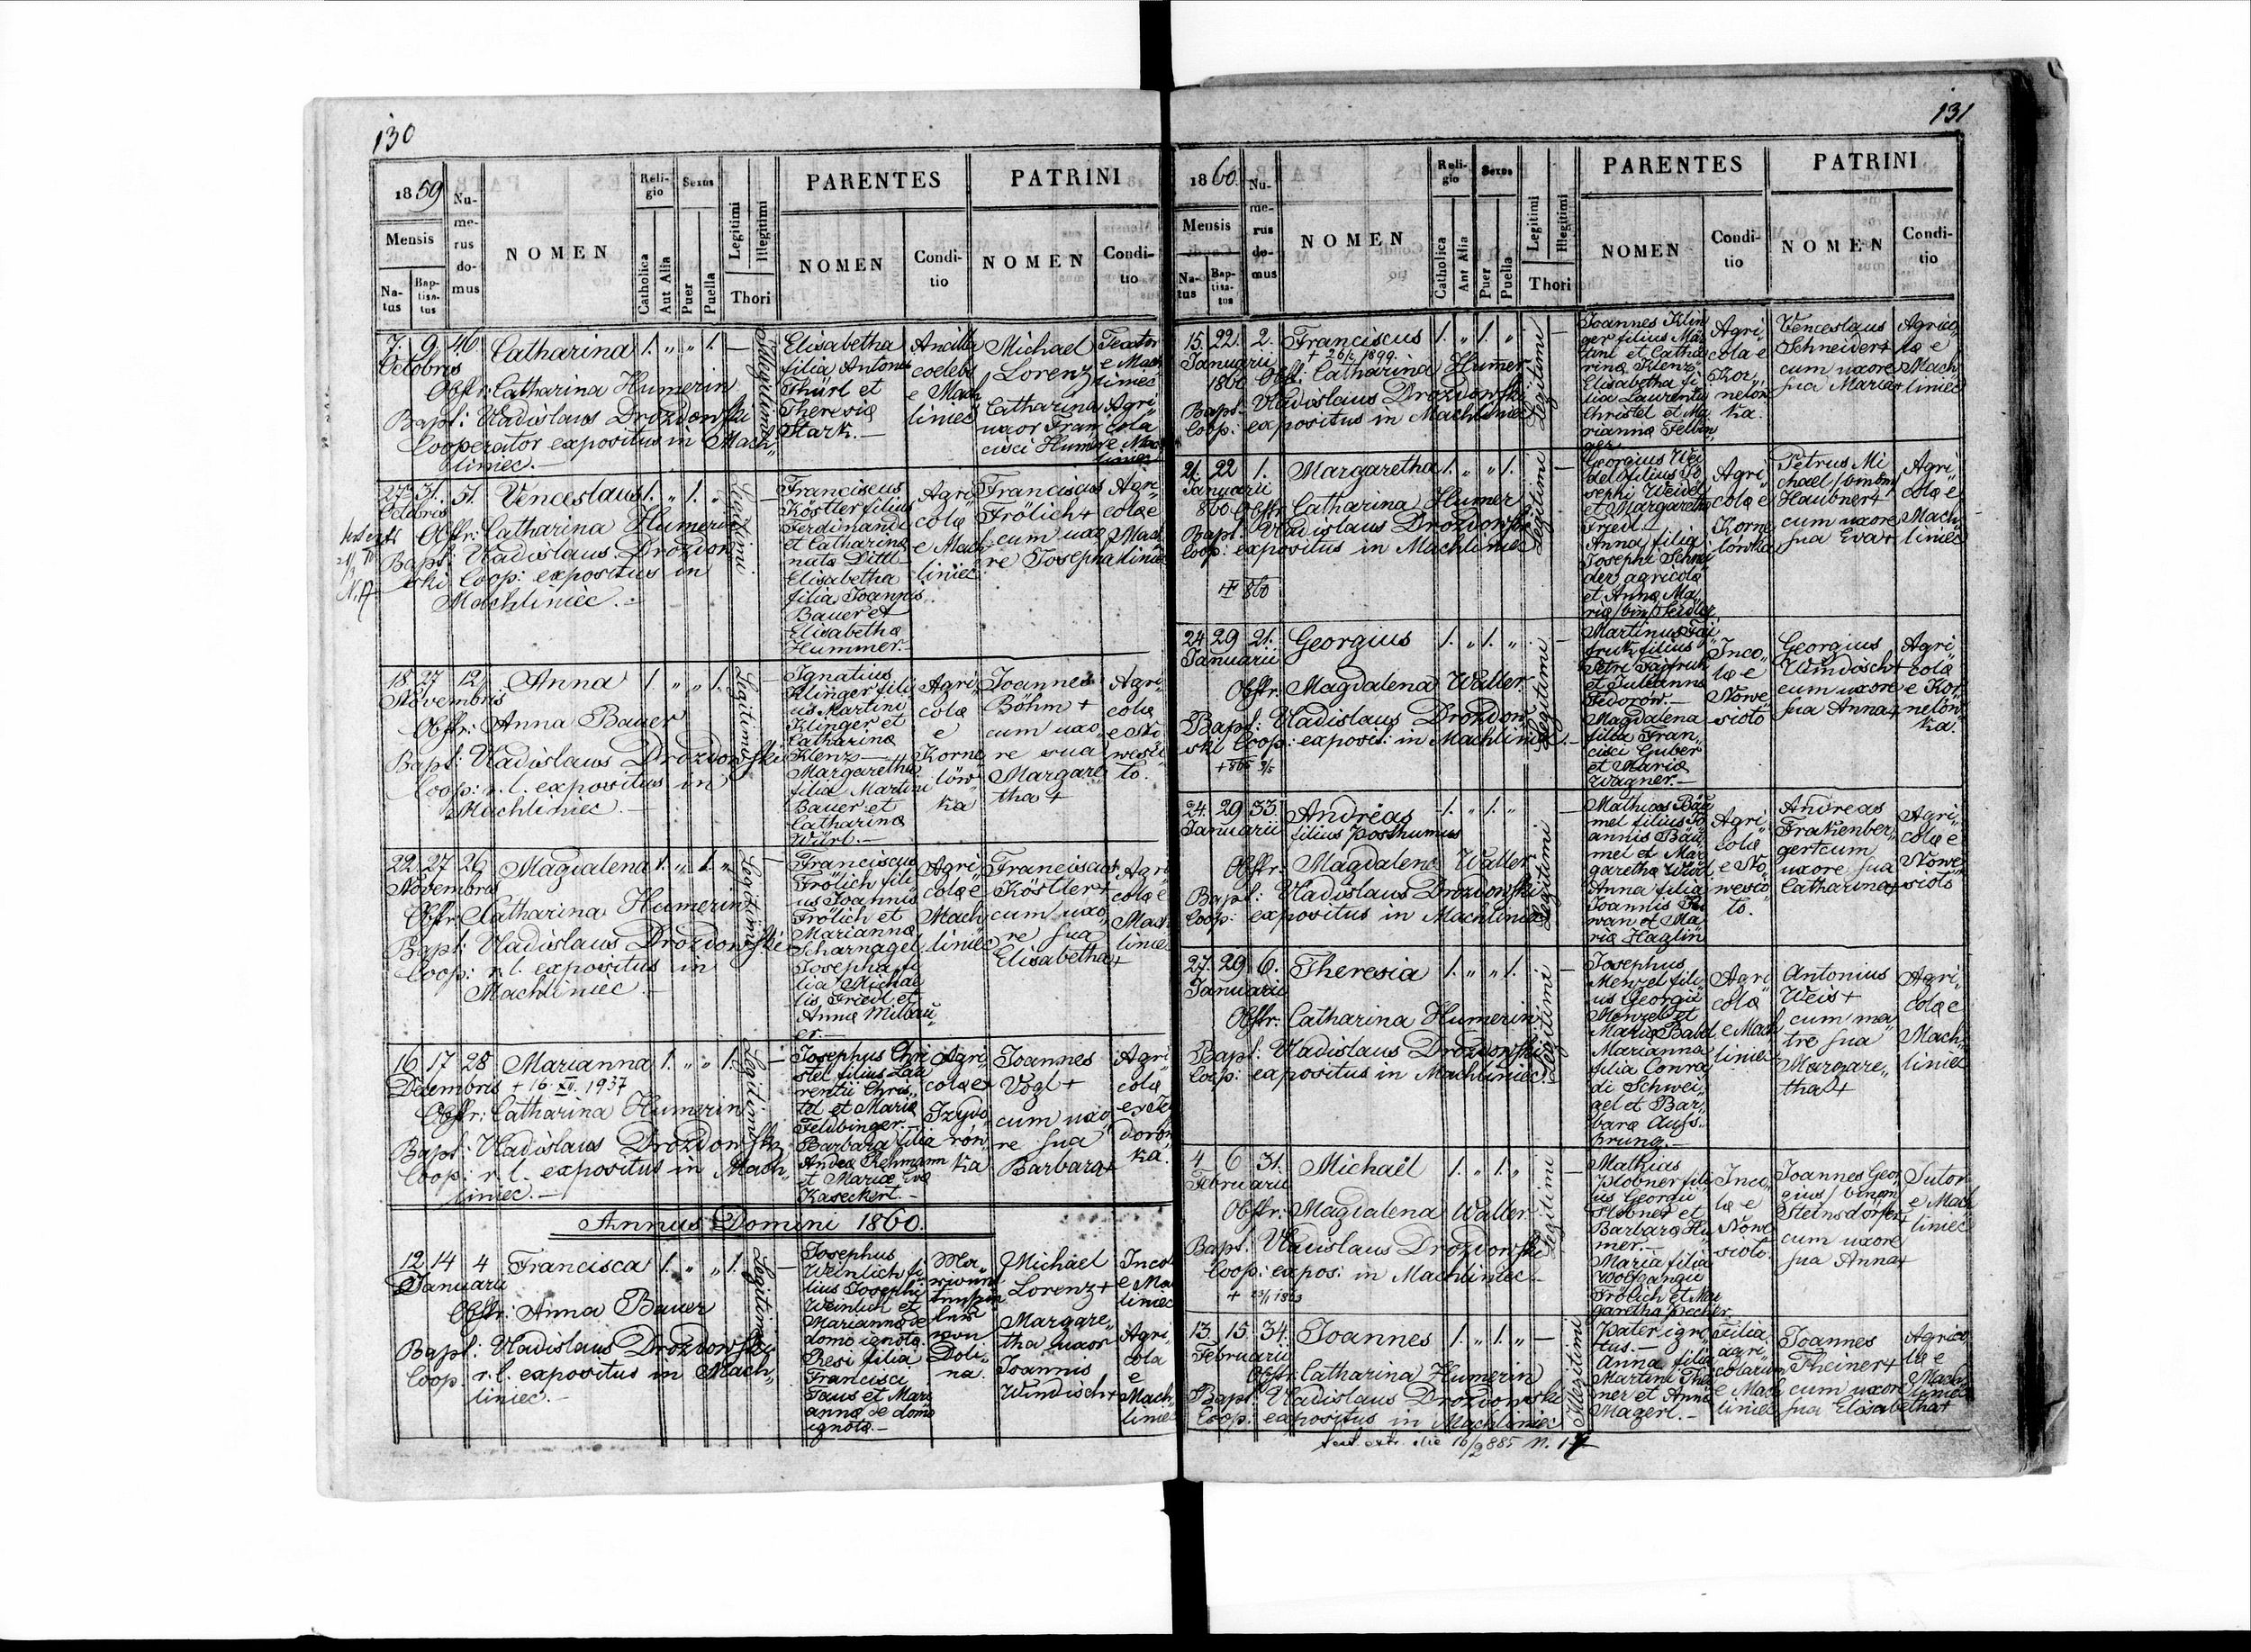 130
1859
Numerus domus
NOMEN
Religio
Sexus
Legitimi
Illegitimi
Thori
PARENTES
PATRINI
Mensis
Natus
Baptisatus
Catholica
Aut Alia
Puer
Puella
NOMEN
Conditio
NOMEN
Conditio
7. 9. 46 Catharina 1. „ „ 1. —
Octobris
Obstr: Catharina Humerin
Bapt: Vladislaus Drozdowski
Cooperator expositus in Mach„
liniec.—
Illegitimi
Elisabetha
filia Antoni
Thürl et
Theresiæ
Stark.—
Ancilla
coelebs
e Mach
liniec
Michael
Lorenz
Catharina
uxor Fran
cisci Humer
Agri
cola
e Mach
liniec
27. 31. 51. Venceslaus 1. „ 1. „ —
Octobris
Obstr: Catharina Humerin
Bapt: Vladislaus Drozdow
ski Coop: expositus in
Machliniec.—
Legitimi
Franciscus
Köstler filius
Ferdinandi
et Catharinæ
natæ Dittl—
Elisabetha
filia Joannis
Bauer et
Elisabethæ
Hummer.—
Agri
colæ
e Mach
liniec
Franciscus
Frölich +
cum uxo
re Josepha
Agri
colæ e
Mach
liniec
18 27 12 Anna 1. „ „ 1. —
Novembris
Obstr: Anna Bauer
Bapt: Vladislaus Drozdowski
Coop: r. l. expositus in
Machliniec.—
Legitimi
Ignatius
Klinger fili
us Martini
Klinger et
Catharinæ
Klenz—
Margaretha
filia Martini
Bauer et
Catharinæ
Würl.—
Agri
colæ
e
Korne
lów
ka
Joannes
Böhm +
cum uxo„
re sua
Margare
tha +
Agri„
colæ
e No
wesio
to.
22. 27 26 Magdalena 1. „ 1. „ —
Novembris
Obstr: Catharina Humerin
Bapt: Vladislaus Drozdowski
Coop: r. l. expositus in
Machliniec.—
Legitimi
Franciscus
Frölich fili
us Joannis
Frölich et
Mariannæ
Scharnagel
Josepha fi
lia Michae
lis Friedl et
Annæ Milbau„
er.—
Agri
colæ e
Mach
liniec
Franciscus
Köstler +
cum uxo„
re sua
Elisabetha +
Agri
colæ e
Mach
liniec
16 17 28 Marianna 1. „ „ 1. —
Decembris + 16. XII. 1937
Obstr: Catharina Humerin
Bapt: Vladislaus Drozdowski
Coop: r. l. expositus in Mach„
liniec.—
Legitimi
Josephus Chri
stel filius Lau
rentii Chris„
tel et Mariæ
Feldbinger.—
Barbara filia
Andreæ Rehmann
et Mariæ Evæ
Kaseckert.—
Agri„
colæ ex
Izydo
rów
ka
Joannes
Vogl +
cum uxo„
re sua
Barbara +
Agri
colæ
ex Izy
dorów
ka.
Annus Domini 1860.
12 14 4 Francisca 1. „ „ 1. —
Januarii
Obstr: Anna Bauer
Bapt: Vladislaus Drozdowski
Coop r. l. expositus in Mach„
liniec.—
Legitimi
Josephus
Weinlich fi
lius Josephi
Weinlich et
Mariannæ de
domo ignotæ
Resi filia
Francisci
Taus et Mari
annæ de domo
ignotæ.—
von
Doli„
na.
Michael
Lorenz +
Margare„
tha uxor
Joannis
Windisch +
Agri„
cola
e
Mach„
liniec
131
1860.
Numerus domus
NOMEN
Religio
Sexus
Legitimi
Illegitimi
Thori
PARENTES
PATRINI
Mensis
Natus
Baptisatus
Catholica
Aut Alia
Puer
Puella
NOMEN
Conditio
NOMEN
Conditio
15. 22. 2. Franciscus 1. „ 1. „ —
Januarii + 26/2 1899.
1860 Obstr: Catharina Humer
Bapt. Vladislaus Drozdowski
Coop: expositus in Machliniec
Legitimi
Joannes Klin
ger filius Mar
tini et Catha
rinæ Klenz
Elisabetha fi
lia Laurentii
Christel et Ma
riannæ Felbin
ger
Agri
cola e
Kor„
nelów
ka.
Venceslaus
Schneider +
cum uxore
sua Maria +
Agrico
læ e
Mach
liniec
21. 22 1. Margaretha 1. „ „ 1. —
Januarii
860 Obstr Catharina Humer
Bapt. Vladislaus Drozdowski
Coop: expositus in Machliniec
Legitimi
Georgius Wei
del filius Jo
sephi Weidel
et Margarethæ
Friedl.
Anna filia
Josephi Schnei
der agricolæ
et Annæ Ma„
riæ /bin/ Seidler
Agri
colæ e
Korne
lówka
Petrus Mi
chael /binom/
Haubner +
cum uxore
sua Eva +
Agri
colæ e
Mach„
liniec
24. 29 21. Georgius 1. „ 1. „ —
Januarii
Obstr. Magdalena Walter
Bapt: Vladislaus Drozdow
ski Coop: exposit: in Machliniec.—
Legitimi
Magdalena
filia Fran„
cisci Guber
et Mariæ
Wagner.—
Inco„
læ e
Nowe
sioto
Georgius
Windisch +
cum uxore
sua Anna +
Agri„
colæ
e Kor„
nelów
ka.
24. 29 33. Andreas 1. „ 1. „
Januarii filius posthumus
Obstr. Magdalena Walter
Bapt: Vladislaus Drozdowski
Coop: expositus in Machliniec
Legitimi
Mathias Bäu
mel filius Jo
annis Bäu„
mel et Mar
garethæ Würl
Anna filia
Joannis
et Ma
riæ Haglin
Agri„
colæ
e No„
wesio
to.
Andreas
Frakenber„
ger cum
uxore sua
Catharina +
Agri„
colæ e
Nowe
sioto
27. 29 6. Theresia 1. „ „ 1. —
Januarii
Obstr. Catharina Humerin
Bapt. Vladislaus Drozdowski
Coop: expositus in Machliniec.
Legitimi
Josephus
Menzel fili„
us Georgii
Menzel et
Mariæ Babel
Marianna
filia Conra
di Schwei„
gel et Bar„
baræ Aufs„
prung.—
Agri„
colæ
e Mach
liniec
Antonius
Weis +
cum ma„
tre sua
Margare„
tha +
Agri„
colæ e
Mach„
liniec
4 6 31. Michaël 1. „ 1. „ —
Februarii
Obstr: Magdalena Walter
Bapt: Vladislaus Drozdowski
Coop: expos: in Machliniec.—
Legitimi
Mathias
Plobner fili„
us Georgii
Plobner et
Barbaræ Hu
mer.—
Maria filia
Wolfgangi
Frölich et Mar
garethæ Precher
Inco„
læ e
Nowe
sioto.
Joannes Geor„
gius /binom/
Steinsdorfer +
cum uxore
sua Anna +
Sutor
e Mach
liniec
13. 15. 34. Joannes 1. „ 1. „ —
Februarii
Obstr. Catharina Humerin
Bapt: Vladislaus Drozdowski
Coop: expositus in Machliniec
Illegitimi
Pater igno„
tus.—
Anna filia
Martini Thei
ner et Annæ
Magerl.—
Filia
agri„
colarum
e Mach
liniec
Joannes
Theiner +
cum uxore
sua Elisabetha +
Agrico
læ e
Mach
liniec